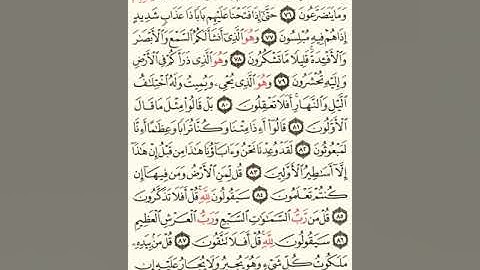 وَمَا يَتَضَرَّعُونَ ٧٦ حَتَّىٰ إِذَا فَتَحْنَا عَلَيْهِم بَابًا ذَا عَذَابٍ شَدِيدٍ
إِذَا هُمْ فِيهِ مُبْلِسُونَ ٧٧ وَهُوَ ٱلَّذِىٓ أَنشَأَ لَكُمُ ٱلسَّمْعَ وَٱلْأَبْصَٰرَ
وَٱلْأَفْـِٔدَةَ ۚ قَلِيلًا مَّا تَشْكُرُونَ ٧٨ وَهُوَ ٱلَّذِى ذَرَأَكُمْ فِى ٱلْأَرْضِ
وَإِلَيْهِ تُحْشَرُونَ ٧٩ وَهُوَ ٱلَّذِى يُحْىِۦ وَيُمِيتُ وَلَهُ ٱخْتِلَٰفُ
ٱلَّيْلِ وَٱلنَّهَارِ ۚ أَفَلَا تَعْقِلُونَ ٨٠ بَلْ قَالُوا۟ مِثْلَ مَا قَالَ
ٱلْأَوَّلُونَ ٨١ قَالُوٓا۟ أَءِذَا مِتْنَا وَكُنَّا تُرَابًا وَعِظَٰمًا أَءِنَّا
لَمَبْعُوثُونَ ٨٢ لَقَدْ وُعِدْنَا نَحْنُ وَءَابَآؤُنَا هَٰذَا مِن قَبْلُ إِنْ هَٰذَآ
إِلَّآ أَسَٰطِيرُ ٱلْأَوَّلِينَ ٨٣ قُل لِّمَنِ ٱلْأَرْضُ وَمَن فِيهَآ إِن
كُنتُمْ تَعْلَمُونَ ٨٤ سَيَقُولُونَ لِلَّهِ ۚ قُلْ أَفَلَا تَذَكَّرُونَ
٨٥ قُلْ مَن رَّبُّ ٱلسَّمَٰوَٰتِ ٱلسَّبْعِ وَرَبُّ ٱلْعَرْشِ ٱلْعَظِيمِ
٨٦ سَيَقُولُونَ لِلَّهِ ۚ قُلْ أَفَلَا تَتَّقُونَ ٨٧ قُلْ مَنۢ بِيَدِهِۦ
مَلَكُوتُ كُلِّ شَىْءٍ وَهُوَ يُجِيرُ وَلَا يُجَارُ عَلَيْهِ إِن